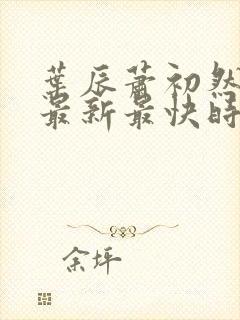 葉辰蕭初然
最新最快時
余坪